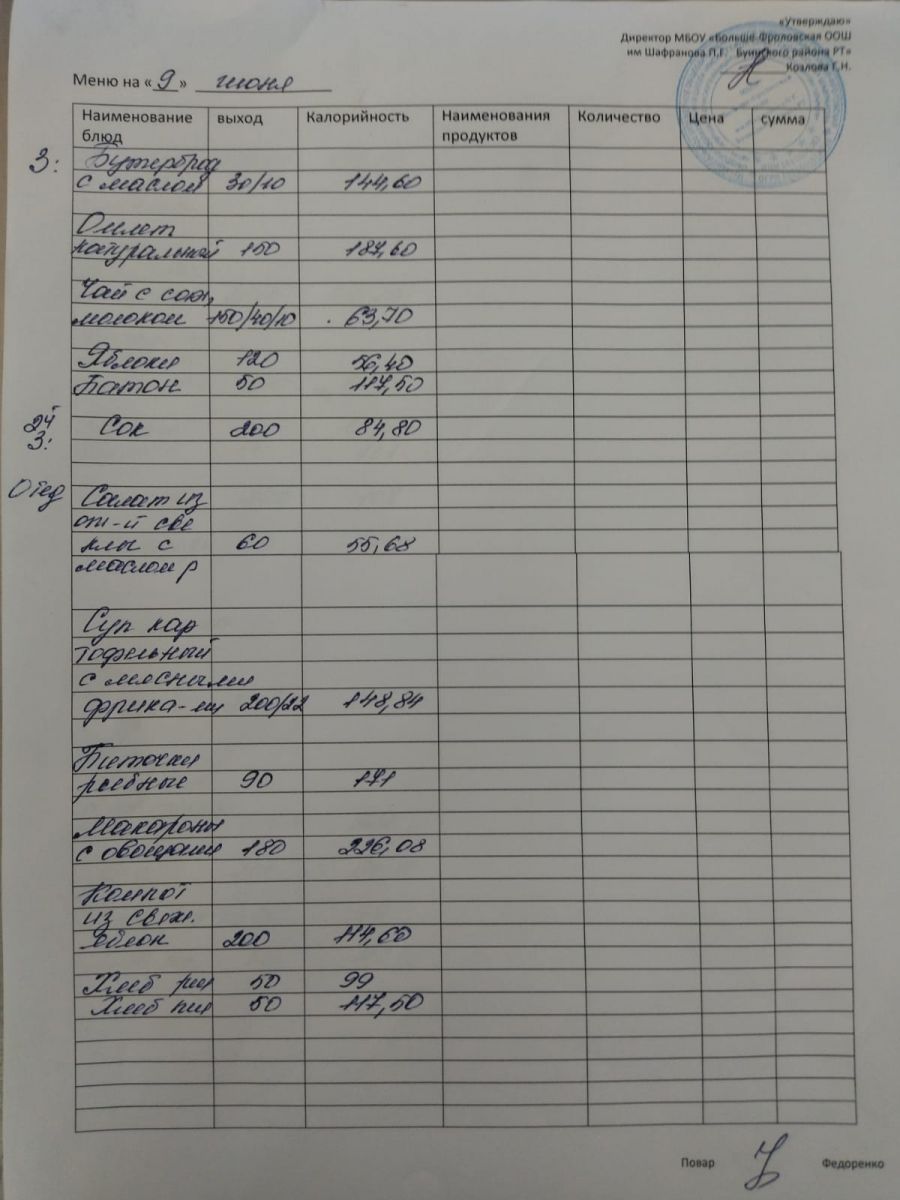 «Утверждаю»
Директор МБОУ «Больше-Фроловская ООШ
им Шафранова П.Г. Буинского района РТ»
Козлова Г.Н.
Меню на « 9 » июня
Наименование блюд выход Калорийность Наименования продуктов Количество Цена сумма
З: Бутерброд
с маслом 30/10 144,60
Омлет
натуральный 150 187,60
Чай с сах,
молоком 150/40/10 63,70
Яблоки 120 56,40
Батон 50 117,50
2й
З: Сок 200 84,80
Обед Салат из
от-й све
клы с 60 55,68
маслом р
Суп кар
тофельный
с мясными
фрика-ми 200/22 148,84
Биточки
рыбные 90 171
Макароны
с овощами 180 226,08
Компот
из свеж.
яблок 200 114,60
Хлеб рж 50 99
Хлеб пш 50 117,50
Повар Федоренко